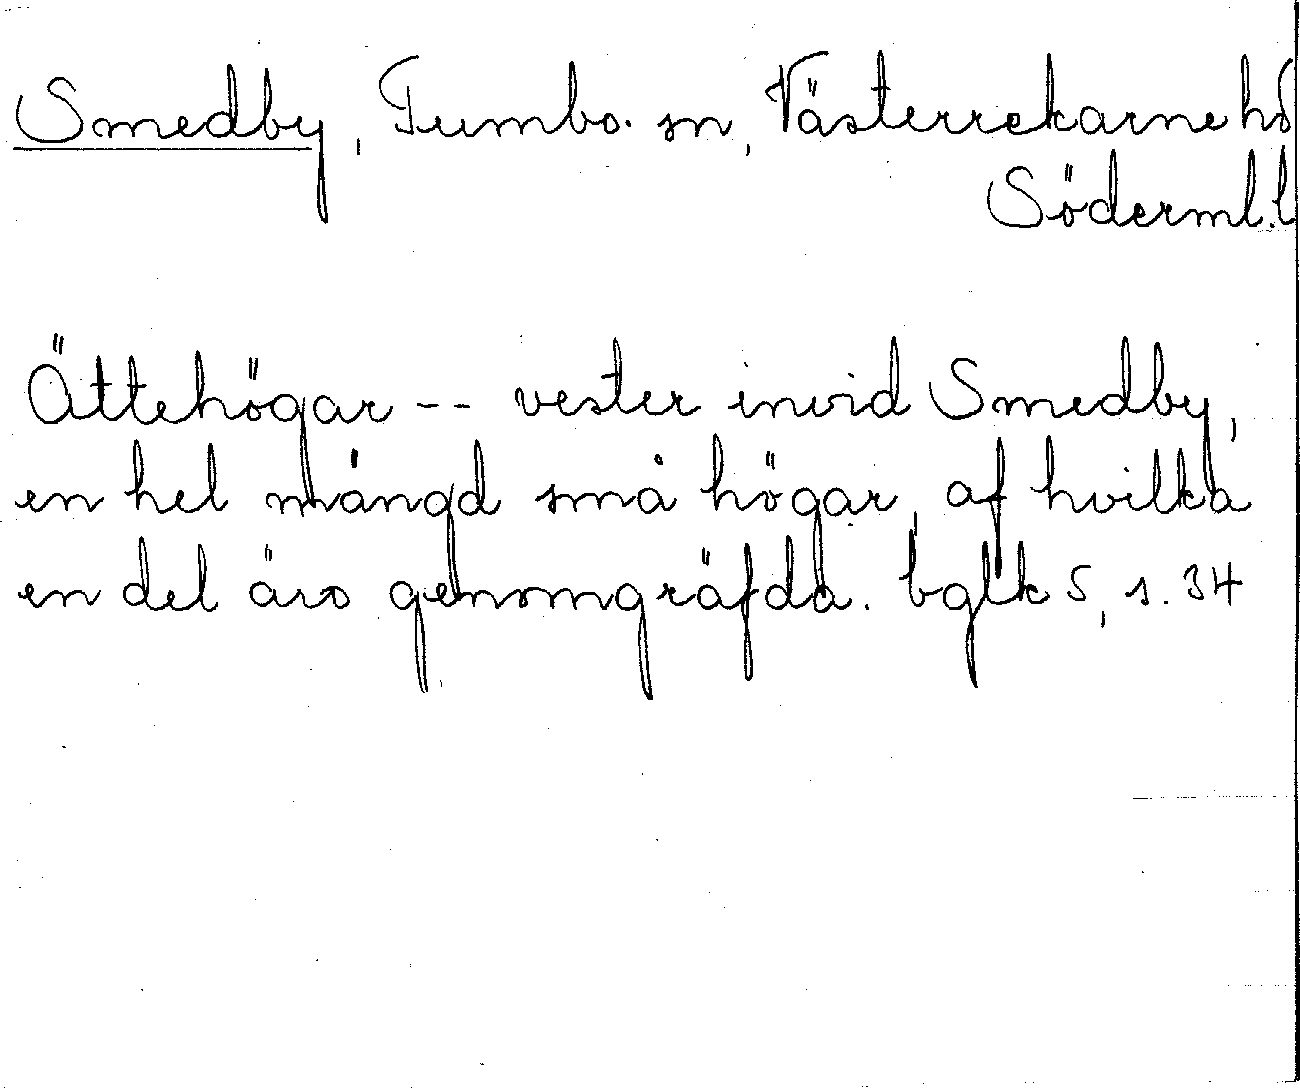 Smedby, Tumbo. sn, Västerrekarne hd
Söderml. l
Ättehögar -- vester invid Smedby,
en hel mängd små högar, af hvilka
en del äro genomgräfda. bglk 5, s. 34